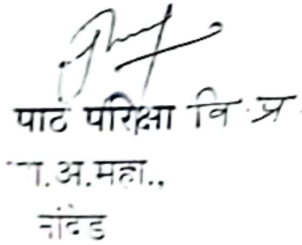 पाठ परिक्षा वि.प्र
अ.महा.,
नांदेड